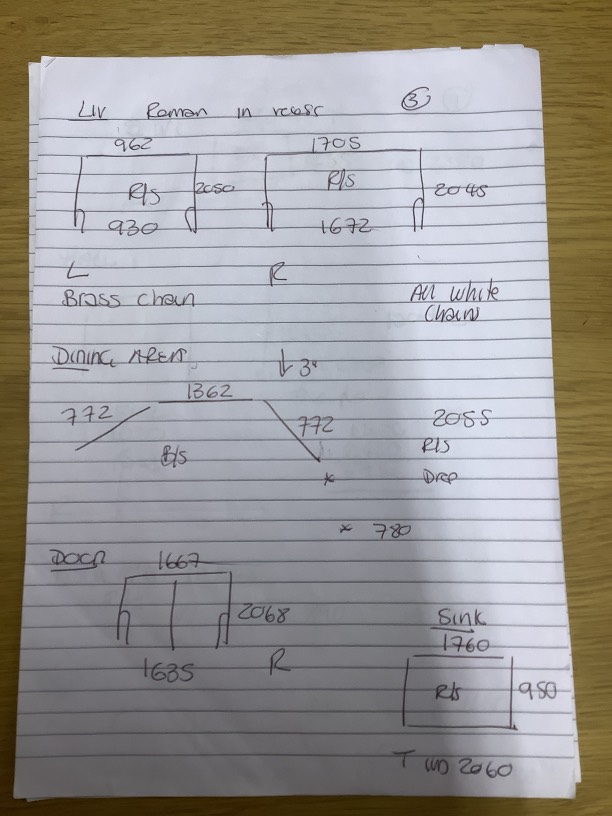 Liv Roman in recess ③
962 1705
R/s 2050 R/s 2045
930 1672
L R
Brass chain All white
Chains
Dining AREA ↓ 3"
1362
772 772 2055
B/s R/s
* Drop
* 780
DOOR 1667
2068 Sink
1635 R 1760
R/s 950
T WD 2060